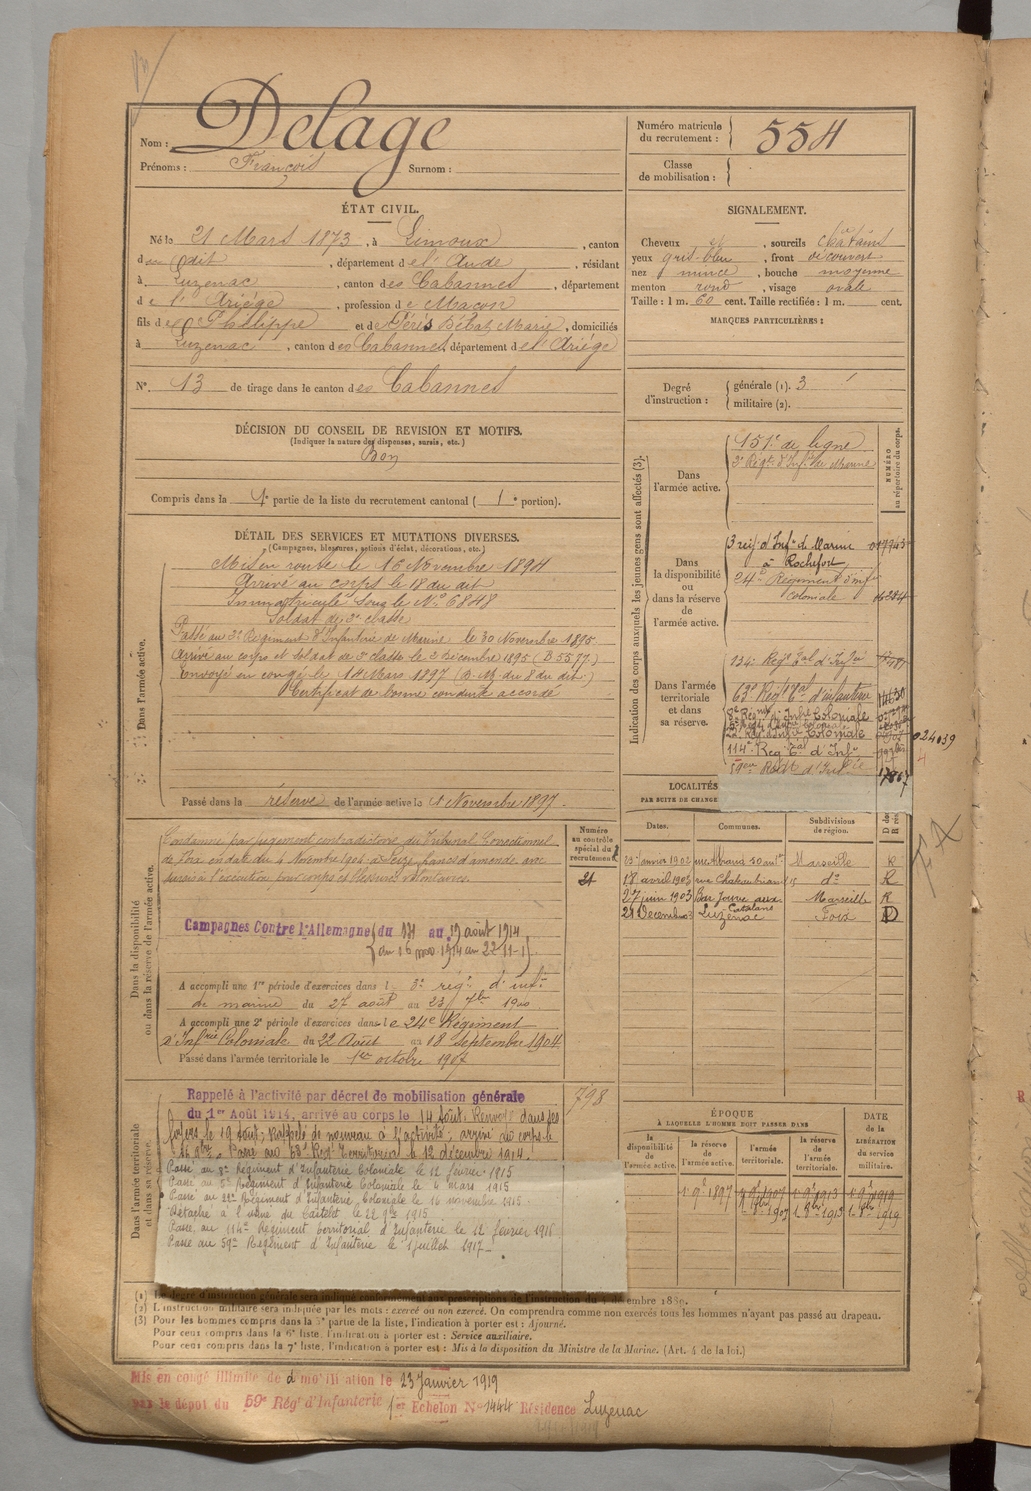 Delage
Nom :
Prénoms : François Surnom :
Numéro matricule
du recrutement : 554
Classe
de mobilisation :
ÉTAT CIVIL.
Né le 21 Mars 1873, à Limoux, canton
du dit, département de l'Aude, résidant
à Luzenac, canton des Cabannes, département
de l'Ariége, profession de Maçon
fils de Philippe et de Marie, domiciliés
à Luzenac, canton des Cabannes, département de l'Ariége
N°. 13 de tirage dans le canton des Cabannes
SIGNALEMENT.
Cheveux et, sourcils châtains
yeux gris-bleu, front découvert
nez mince, bouche moyenne
menton rond, visage ovale
Taille : 1 m. 60 cent. Taille rectifiée : 1 m. cent.
MARQUES PARTICULIÈRES :
Degré
d'instruction :
générale (1). 3
militaire (2).
DÉCISION DU CONSEIL DE REVISION ET MOTIFS.
(Indiquer la nature des dispenses, sursis, etc.)
Bon
Compris dans la 1e partie de la liste du recrutement cantonal ( 1e portion).
DÉTAIL DES SERVICES ET MUTATIONS DIVERSES.
(Campagnes, blessures, actions d'éclat, décorations, etc.)
Dans l'armée active.
Mis en route le 16 Novembre 1894
Arrivé au corps le 18 du dit
Immatriculé sous le No 6848
Soldat de 2e classe
Passé au 3e Régiment d'Infanterie de Marine le 30 Novembre 1895
Arrivé au corps et soldat de 2e classe le 2 Décembre 1895 (B 5577)
Envoyé en congé le 18 Mars 1897 (du 8 du dit.)
Certificat de bonne conduite accordé
Passé dans la réserve de l'armée active le 1 Novembre 1897.
Indication des corps auxquels les jeunes gens sont affectés (3).
NUMÉRO
au répertoire du corps.
Dans
l'armée active.
151e de ligne
3e Régt d'Infie de Marine
Dans
la disponibilité
ou
dans la réserve
de
l'armée active.
3 rég. d'Infie de Marine
à Rochefort
24e Régiment d'infie
coloniale
Dans l'armée
territoriale
et dans
sa réserve.
134e Régt Tal d'Infie
63e Régt Tal d'infanterie
8e Régt d'Infrie Coloniale
Coloniale
024039
114e Reg Tal d'Infie
59eme Regt d'Infrie
17867
LOCALITÉS
PAR SUITE DE CHANGE
Dates.
Communes.
Subdivisions
de région.
Janvier 1902 Marseille R
18 avril 1903 rue Chateaubriand 15 do R
27 juin 1903 Bar aux Catalans Marseille R
21 Décembre Luzenac Foix D
Dans la disponibilité
ou dans la réserve de l'armée active.
Numéro
au contrôle
spécial du
recrutement
21
Condamné par jugement contradictoire du Tribunal Correctionnel
de Foix en date du 4 Novembre 1904 à seize francs d'amende avec
sursis à l'exécution pour coups et blessures volontaires.
Campagnes Contre l'Allemagne du au 19 août 1914
du 16 nov. 1914 au
A accompli une 1re période d'exercices dans le 3e rég. d'infie
de marine du 27 août au 23 7bre 1900
A accompli une 2e période d'exercices dans le 24e Régiment
d'Infrie Coloniale du 22 Août au 18 Septembre 1904
Passé dans l'armée territoriale le 1er octobre 1907
Dans l'armée territoriale
et dans sa réserve.
798
Rappelé à l'activité par décret de mobilisation générale
du 1er Août 1914, arrivé au corps le 14 août. Renvoyé dans ses
foyers le 19 août; Rappelé de nouveau à l'activité; arrivé au corps le
16 9bre. Passé au 63e Régt Territorial le 12 décembre 1914.
Passé au 8e Régiment d'Infanterie Coloniale le 12 février 1915
Passé au 5e Régiment d'Infanterie Coloniale le 4 mars 1915
Passé au 22e Régiment d'Infanterie Coloniale le 16 novembre 1915
Détaché à l'usine du Castelet le 22 9bre 1915
Passé au 114e Régiment territorial d'Infanterie le 12 février 1916
Passé au 59e Régiment d'Infanterie le 1 juillet 1917
ÉPOQUE
À LAQUELLE L'HOMME DOIT PASSER DANS
la
disponibilité
de l'armée active.
la réserve
de
l'armée active.
l'armée
territoriale.
la réserve
de
l'armée
territoriale.
DATE
de la
LIBÉRATION
du service
militaire.
1 9e 1897 1 9e 1907 1 9e 1913 1 9e 1919
1 8bre 1907 1 8bre 1913 1 8bre 1919
(1) Le degré d'instruction générale sera indiqué conformément aux prescriptions de l'instruction du 4 décembre 1889.
(2) L'instruction militaire sera indiquée par les mots : exercé ou non exercé. On comprendra comme non exercés tous les hommes n'ayant pas passé au drapeau.
(3) Pour les hommes compris dans la 5e partie de la liste, l'indication à porter est : Ajourné.
Pour ceux compris dans la 6e liste, l'indication à porter est : Service auxiliaire.
Pour ceux compris dans la 7e liste, l'indication à porter est : Mis à la disposition du Ministre de la Marine. (Art. 4 de la loi.)
Mis en congé illimité de démobilisation le 23 Janvier 1919
par le dépôt du 59e Régt d'Infanterie 1er Echelon No 1444 Résidence Luzenac